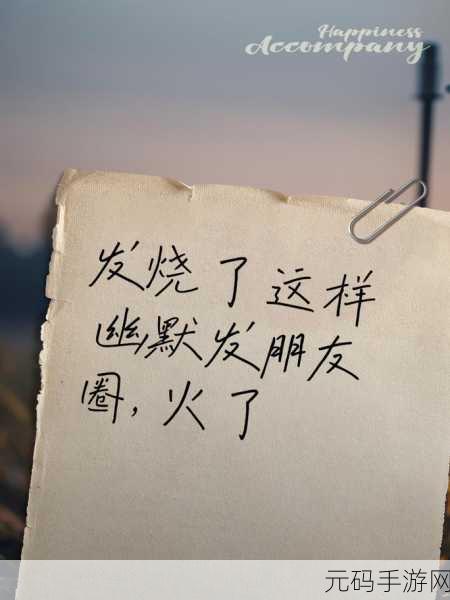 Happiness
Accompany
发烧了这样
幽默发朋友
圈,火了
元码手游网